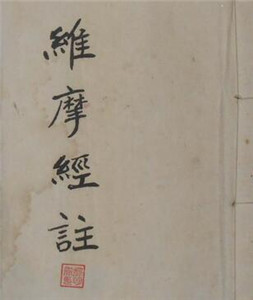 維摩經註